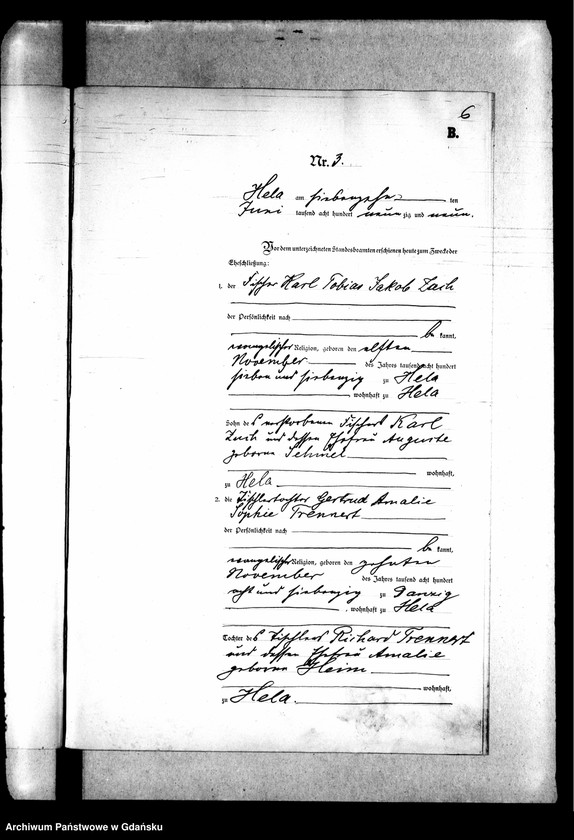 6
B.
Nr. 3.
Hela am siebenzehn ten
Juni tausend acht hundert neun zig und neun.
Vor dem unterzeichneten Standesbeamten erschienen heute zum Zwecke der
Eheschließung:
1. der Fischer Karl Tobias Jakob
der Persönlichkeit nach
be kannt,
evangelischer Religion, geboren den elften
November des Jahres tausend acht hundert
sieben und siebenzig zu Hela
wohnhaft zu Hela
Sohn des verstorbenen Fischers Karl
und dessen Ehefrau Auguste
geborene
wohnhaft,
zu Hela
2. die Tischlertochter Gertrud Amalie
Sophie Trennert
der Persönlichkeit nach
be kannt,
evangelischer Religion, geboren den zehnten
November des Jahres tausend acht hundert
acht und siebenzig zu Danzig
wohnhaft zu Hela
Tochter des Tischlers Richard Trennert
und dessen Ehefrau Amalie
geborene
wohnhaft,
zu Hela.
Archiwum Państwowe w Gdańsku